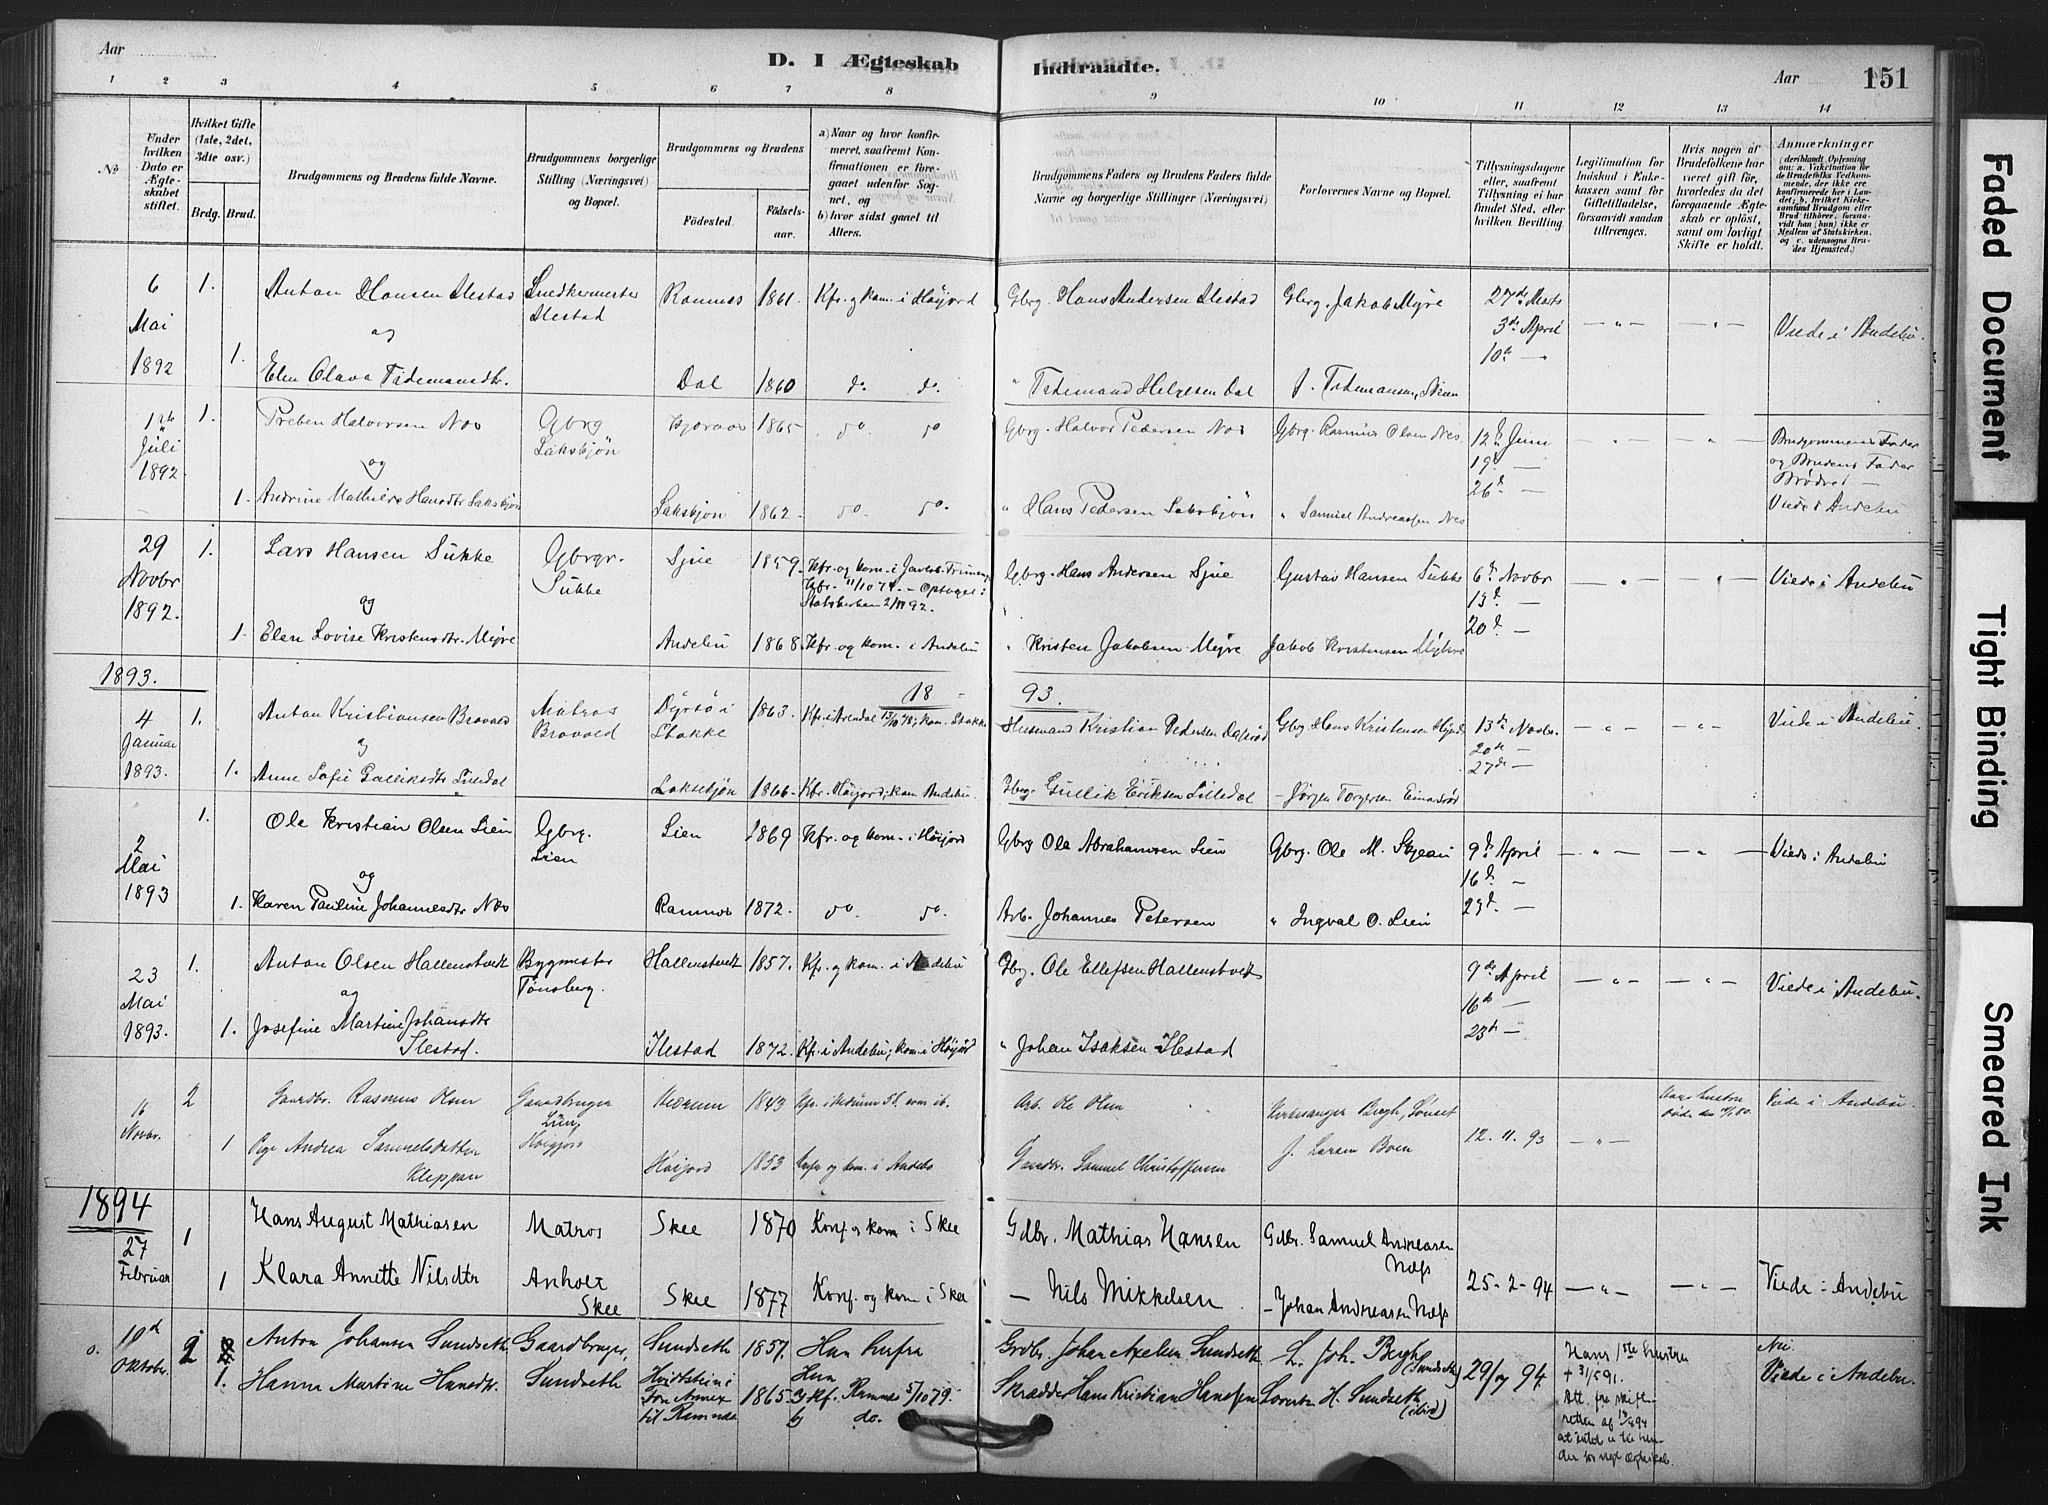 Aar
D. I Ægteskab Indtraadte.
Aar 151
1 2 3 4 5 6 7 8 9 10 11 12 13 14
No
Under hvilken Dato er Ægteskabet stiftet.
Hvilket Gifte (1ste, 2det, 3dte osv.)
Brdg. Brud.
Brudgommens og Brudens fulde Navne.
Brudgommens borgerlige Stilling (Næringsvei) og Bopæl.
Brudgommens og Brudens
Fødested.
Fødselsaar.
a) Naar og hvor konfirmeret, saafremt Konfirmationen er foregaaet udenfor Sognet, og
b) hvor sidst gaaet til Alters.
Brudgommens Faders og Brudens Faders fulde Navne og borgerlige Stillinger (Næringsvei)
Forlovernes Navne og Bopæl.
Tillysningsdagene eller, saafremt Tillysning ei har fundet Sted, efter hvilken Bevilling.
Legitimation for Indskud i Enkekassen samt for Giftetilladelse, forsaavidt saadan tiltrænges.
Hvis nogen af Brudefolkene har været gift før, hvorledes da det foregaaende Ægteskab er opløst, samt om lovligt Skifte er holdt.
Anmærkninger (deriblandt Oplysning om: a. Vakcination for de Brudefolks Vedkommende, der ikke ere konfirmerede her i Landet; b. hvilket Kirkesamfund Brudgom eller Brud tilhører, forsaavidt han (hun) ikke er Medlem af Statskirken, og c. udensogns Brudes Hjemsted.)
6 Mai 1892 1. Anton Hansen Ilestad Snedkermester Ilestad Ramnes 1861. Kfr. og kom. i Høijord Gbrg. Hans Andersen Ilestad Gbrg. Jakob Myre 27de Marts — " — — " — Viede i Andebu.
og 3de April
1. Elen Olava Tidemansdtr. Dal 1860 do. do. " Tidemand Helgesen Dal J. Tidemansen, 10de —
Juli 1892 1. Preben Halvorsen Nes Gbrg Laksbjøn 1865 do do Gbrg. Halvor Pedersen Nes Gbrg. Rasmus Olsen Nes 12te Juni — " — " Brudgommens Fader
og 19de — og Brudens Fader
1. Andrine Mathilde Hansdtr Laksbjøn Laksbjøn 1862. do. do. " Hans Pedersen Laksbjøn " Samuel Andreassen Nes 26de — Brødre —
Viede i Andebu
29 Novbr 1892. 1. Lars Hansen Sukke Gbrgr. Sukke Sjue 1859. Kfr. og kom. i Jarlsb. Frimen. Gbrg. Hans Andersen Sjue Gustav Hansen Sukke 6te Novbr — " — " — Viede i Andebu
og Kfr. 11/10 74. — Optaget i 13de —
Statskirken 2/11 92.
1. Elen Lovise Kristensdtr. Myre Andebu 1868. Kfr. og kom. i Andebu " Kristen Jakobsen Myre Jakob Kristensen Myhre 20de —
1893. 18 93.
4 Januar 1893. 1. Anton Kristiansen Bravald Matros Bravald Dyrsø i Stokke 1863. Kfr. i Arendal 13/10 78; kom. Stokke Husmand Kristian Pedersen Gbrg. Hans Kristensen 13de Novbr. — " — — " — Viede i Andebu.
og 20de —
1. Anne Sofie Gulliksdtr Lilledal Laksebjøn 1866. Kfr. Høijord; kom Andebu. Gbrg. Gullik Eriksen Lilledal — Jørgen Torgersen Einarsrød 27de —
2 Mai 1893 1. Ole Kristian Olsen Lien Gbrg. Lien Lien 1869 Kfr. og kom. i Høijord Gbrg Ole Abrahamsen Lien Gbrg. Ole M. Skjeau 9de April — " — — " — Viede i Andebu
og 16de —
1. Karen Pauline Johannesdtr Nes Ramnes 1872. do. do. Arb. Johannes Petersen " Ingval O. Lien 23de —
23 Mai 1893. 1. Anton Olsen Hallenstvedt Bygmester Tønsberg. Hallenstvedt 1857. Kfr. og kom. i Andebu Gbrg. Ole Ellefsen Hallenstvedt 9de April — " — — " — Viede i Andebu.
og 16de —
1. Josefine Martine Johansdtr Ilestad. Ilestad 1872. Kfr. i Andebu; kom. i Høijord " Johan Isaksen Ilestad 23de —
16 Novbr. 2 Gaardbr. Rasmus Olsen Gaardbruger Lien, Høigjord Hedrum 1843 Kfr. i Hedrum 58. kom ib. Arb. Ole Kirkesanger Bergh, 12. 11. 93 — " — Viede i Andebu.
1 Pige Andrea Samuelsdatter Kleppan Høijord 1853 og kom. i Andebu Gaardbr. Samuel Christoffersen J. Larsen Boen
1894
27 Februar 1 Hans August Mathiasen Matros Skee 1870 Konf. og kom i Skee Gdbr. Mathias Hansen Gdbr. Samuel Andreasen Næss
1 Klara Annette Nilsdtr Anholt Skee Skee 1877 Konf. og kom i Skee — Nils Mikkelsen — Johan Andreasen Næss 25-2-94 — " — — " — Viede i Andebu
0. 10d Oktober. 2 Anton Johansen Sundseth Gaardbruger, Sundseth Sundseth 1857. Han herfra Grdbr. Johan Axelsen Sundseth L. Joh. Bergh (Sundseth) 29/7 94 Hans 1ste hustru
+ 31/5 91.
1. Hanna Martine Hansdtr. Hvidstein i Fon Annex til Ramnes 1865. Hun a) Kf. Ramnes 5/10 79. Skrædder Hans Kristian Hansen Lorentz H. Sundseth (ibid)
b) do.
Att. fra skifteretten af
Viede i Andebu.